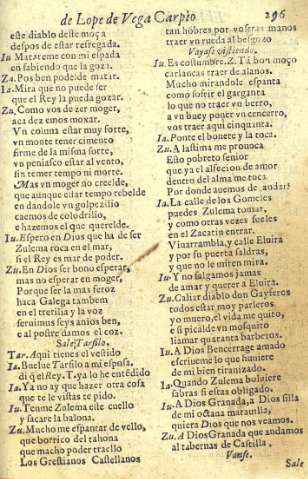 de Lope de Vega Carpio 296
este diablo deste moça
despos de estar resfregada.
Iu Matareme con mi espada
en sabiendo que la goza.
Za. Pos ben podelde matar.
Ia. Mira que no puede ser
que el Rey la pueda gozar.
Zu. Como vos de zer moger,
aca dez emos moxar.
Vn coluna estar muy forte,
vn monte tener cimento
firme de la misma sorte,
vn peniasco estar al vento,
sin temer tempo ni morte.
Mas vn moger no creelde,
que aunque estar tempo rebelde
en dandole vn golpezilio
caemos de colodrilio,
e hazemos el que querelde.
Iu. Espero en Dios que ha de ser
Zulema roca en el mar,
si el Rey es mar de poder.
Zu. En Dios ser bono esperar,
mas no esperar en moger,
Porque ser la mas feroz
haca Galega tambem
en el tretilia y la voz
seruimus seys anios ben,
e al postre damos el coz.
Sale Tarfilo.
Tar. Aqui tienes el vestido
Ia. Buelue Tarfilo a mi esposa,
di q̃ el Rey. T. ya lo he entẽdido
Ia. Ya no ay que hazer otra cosa
que te le vistas te pido.
Iu. Tenme Zulema este cuello
y sacare la balona.
Zu. Mucho me espantar de vello,
que borrico del tahona
que macho poder traello
Los Grestianos Castellanos
tan hobres por vostras manos
traer vn rueda al besgozo
Vayase vistiendo.
Iu. Es costumbre. Z. Tã bon moço
carlancas traer de alanos.
Mucho mirandole espanta
como sofrir el garganta
lo que no traer vn berro,
a vn buey poner vn cencerro,
vos traer aqui cinquanta.
Ia. Ponte el bonete y la toca.
Zu. A lastima me prouoca
Esto pobreto senior
que ya el alfescion de amor
dentro del alma me toca
Por donde auemos de andar?
Ia. La calle de los Gomeles
puedes Zulema tomar,
y como otras vezes sueles
en el Zacatin entrar.
Viuarrambla, y calle Eluira
y por su puerta saldras,
y que no le miten mira.
Iu. Y no salgamos jamas
de amar y querer a Eluira.
Zu. Caliar diablo don Gayferos
todos estar moy parleros,
yo muero, el vida me quito,
e si picalde vn mosquito
liamar quaranta barberios.
Iu. A Dios Bencerrage amado
escriueme lo que huuiere
de mi bien tiranizado.
Ia. Quando Zulema boluiere
sabras si estas obligado.
Iu. A Dios Granada, a Dios silla
de mi octaua marauilla,
quiera Dios que nos veamos.
Zu. A Dios Granada que andamos
al tabernas de Castilla.
Vanse.
Sale